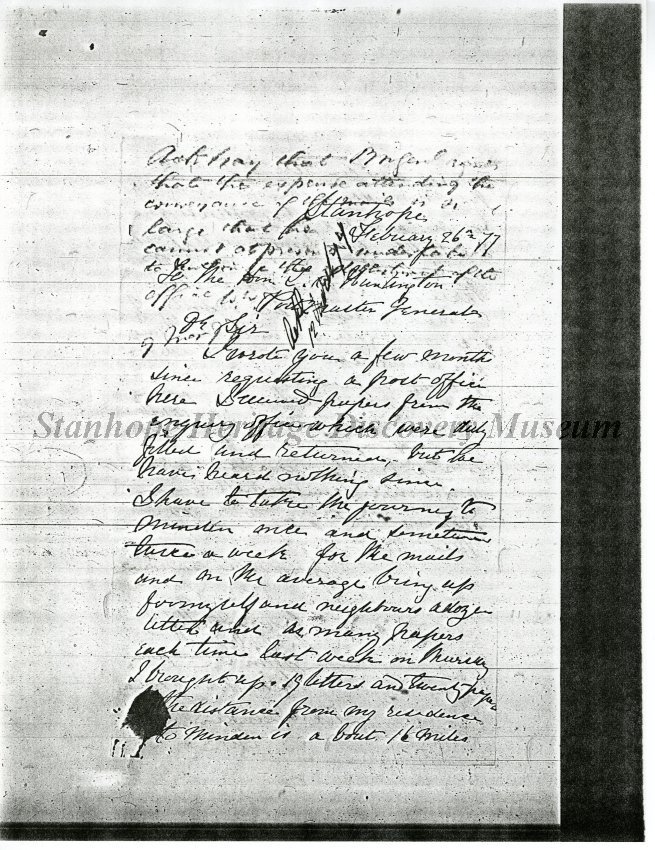 Ask Gray that
that the expense attending the
conveyance of the mails is so
large that he
cannot at present undertake
to
office
Stanhope
February 26th 77
To the Hon L. S. Huntington
Post Master General
Dr Sir
I wrote you a few month
since requesting a post office
here I received papers from the
enquiry office which were duly
filled and returned, but we
have heard nothing since.
I have to take the journey to
Minden once and sometimes
twice a week for the mails
and on the average bring up
for myself and neighbours a dozen
letters and as many papers
each time last week on Thursday
I brought up 19 letters and twenty papers
the distance from my residence
to Minden is about 16 miles
Stanhope Heritage Discovery Museum